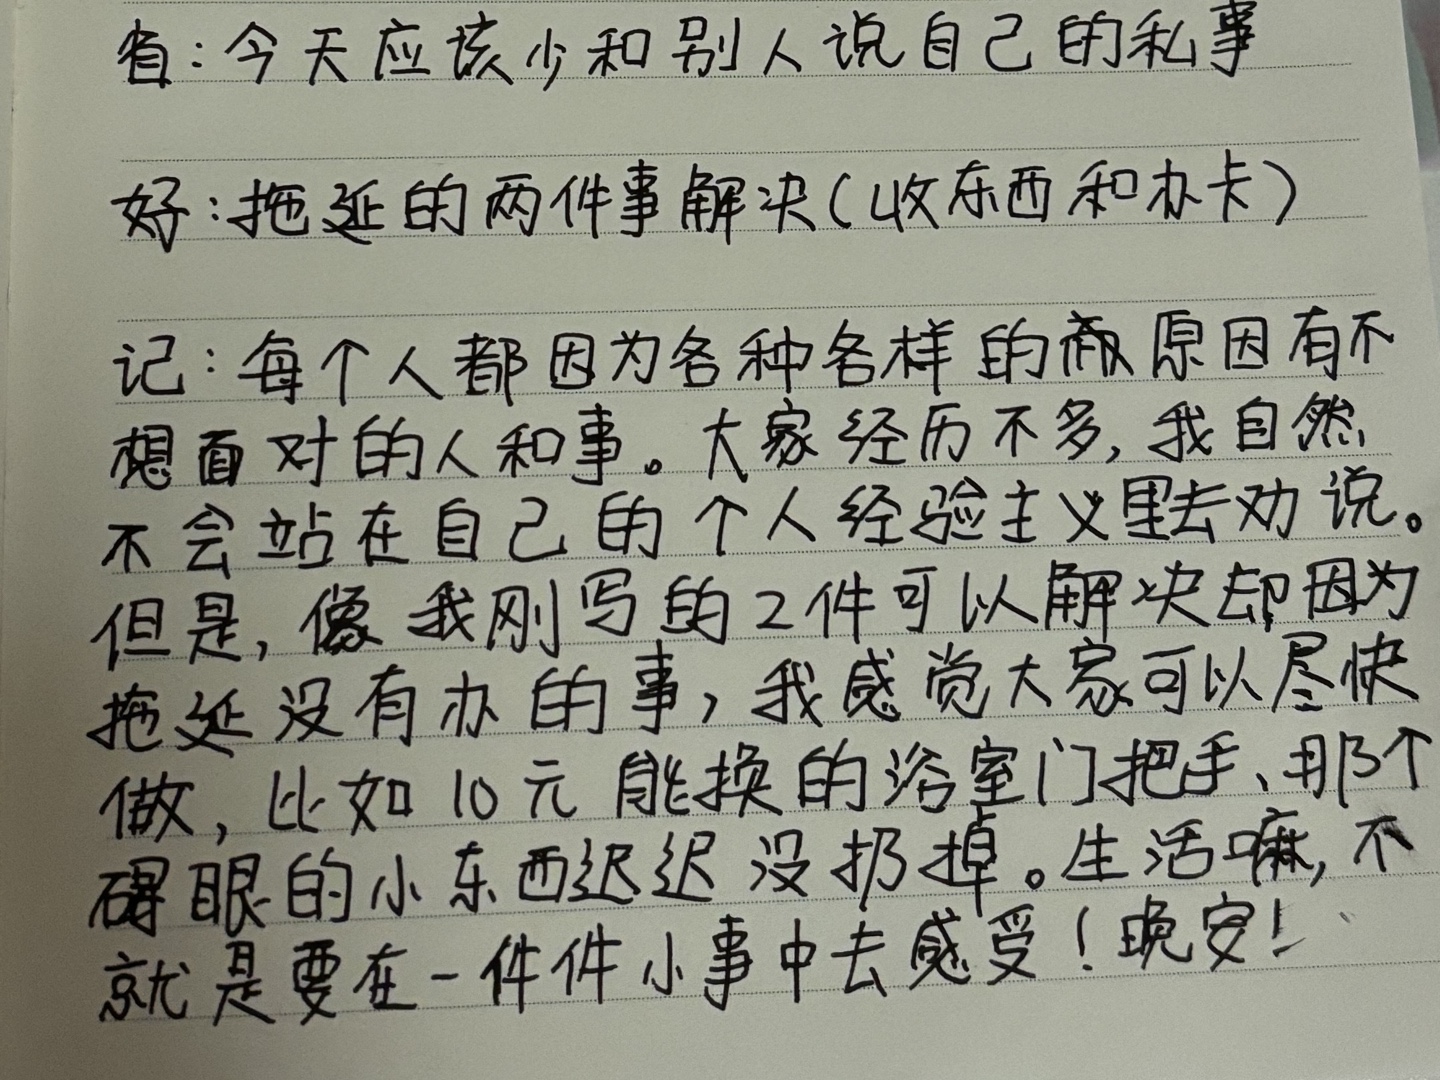 省：今天应该少和别人说自己的私事
好：拖延的两件事解决（收东西和办卡）
记：每个人都因为各种各样的原因有不
想面对的人和事。大家经历不多，我自然
不会站在自己的个人经验主义里去劝说。
但是，像我刚写的2件可以解决却因为
拖延没有办的事，我感觉大家可以尽快
做，比如10元能换的浴室门把手、那个
碍眼的小东西迟迟没扔掉。生活嘛，不
就是要在一件件小事中去感受！晚安！